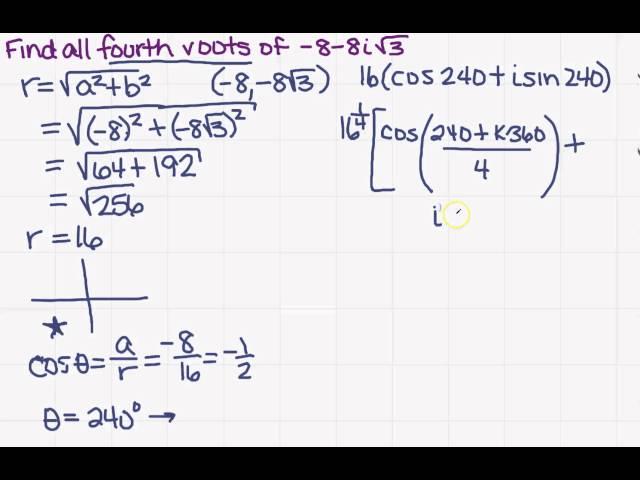 Find all fourth roots of -8-8i√3
r=√a²+b² (-8,-8√3)
=√(-8)²+(-8√3)²
=√64+192
=√256
r=16
cosθ=a/r=-8/16=-1/2
θ=240°→
16(cos240+isin240)
16^1/4[cos(240+K·360/4)+
i